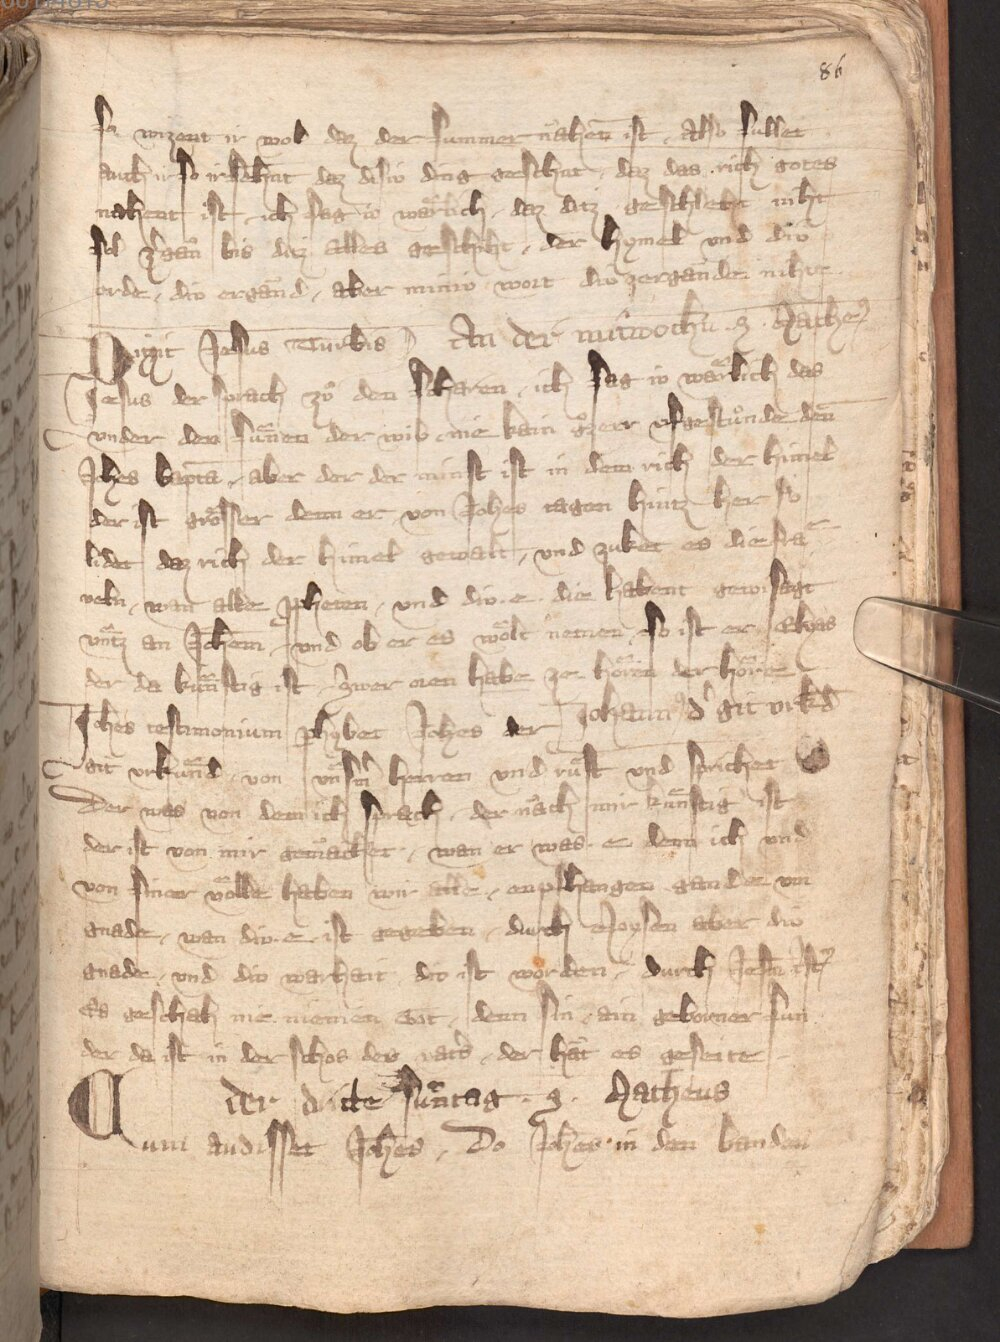 86
So wizent ir wol daz der summer nahen ist also sullet
auch ir so ir sehent daz disiv ding geschent daz das rich gotes
nahent ist ich sag iv waͤrlich daz ditz geschlehte niht
sol zergan bis diz alles geschiht der hymel und div
erde div ergand aber miniv wort div zergande niht
Dixit Jesus Turbis An der mitwochn Matheus
Jesus der sprach zuͦ den scharen ich sag iv waͤrlich das
under den sunen der wib nie kain groͤzerr ufgestuͦnde denn
Johes bapta aber der der minst ist in dem rich der himel
der ist groͤsser denn er von Johes tagen hintz her so
lidet daz rich der himel gewalt und zuket es die fra
veln wan alle ppheten und div e die habent gewisagt
untz an Johem und ob er es woͤlt nemen so ist er Elyas
der da kuͤnftig ist swer oren habe ze hoͤren der hoͤre
Johes testimonium phybet Johes der Johann d git vrkd
git urkund von unserm herren und ruͤft und sprichet
Der was von dem ich sprach der nach mir kunftig ist
der ist vor mir gemachet wan er was e denn ich und
von siner voͤlle haben wir alle enphangen gnade um
gnade wan div e ist gegeben durch Moysen aber div
gnade und div warhait div ist worden durch Jesu
Es geschah nie niemen Got denn sin ain geborner sun
der da ist in der schos des vaters der hat es geseite
der dritte suntag Matheus
Cum audisset Johes Do Johes in den banden